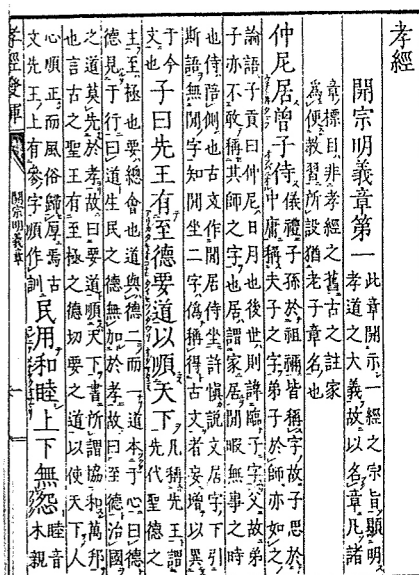 孝經
開宗明義章第一
此章開示一經之宗旨顯明
孝道之大義故以名章凡諸
章摽目非孝經之舊古之註家
為便教習所設猶老子章名也
仲尼居曾子侍
儀禮子孫於祖禰皆稱字故子思於
中庸稱夫子之字弟子於師亦如之
論語子貢曰仲尼日月也後世則諱臨子字父故弟
子亦不敢稱其師之字也居謂家居閒暇無事之時
也侍陪側也古文作閒居侍坐許慎說文居字下引
斯語無閒字知閒坐二字偽稱得古文者妄增以異
于今
文也
子曰先王有至德要道以順天下
凡稱先王謂
先代聖德之
主至極也要總會也道與德二而一道本于心曰德
德見于行曰道生民之德無加於孝故曰至德治國
之道莫先於孝故曰要道順天下書所謂協和萬邦
也言古之聖王有至極之德切要之道以使天下人
心順正而風俗歸厚焉古
文先王上有參字順作訓
民用和睦上下無怨
睦音
木親
孝經發揮
開宗明義章
一